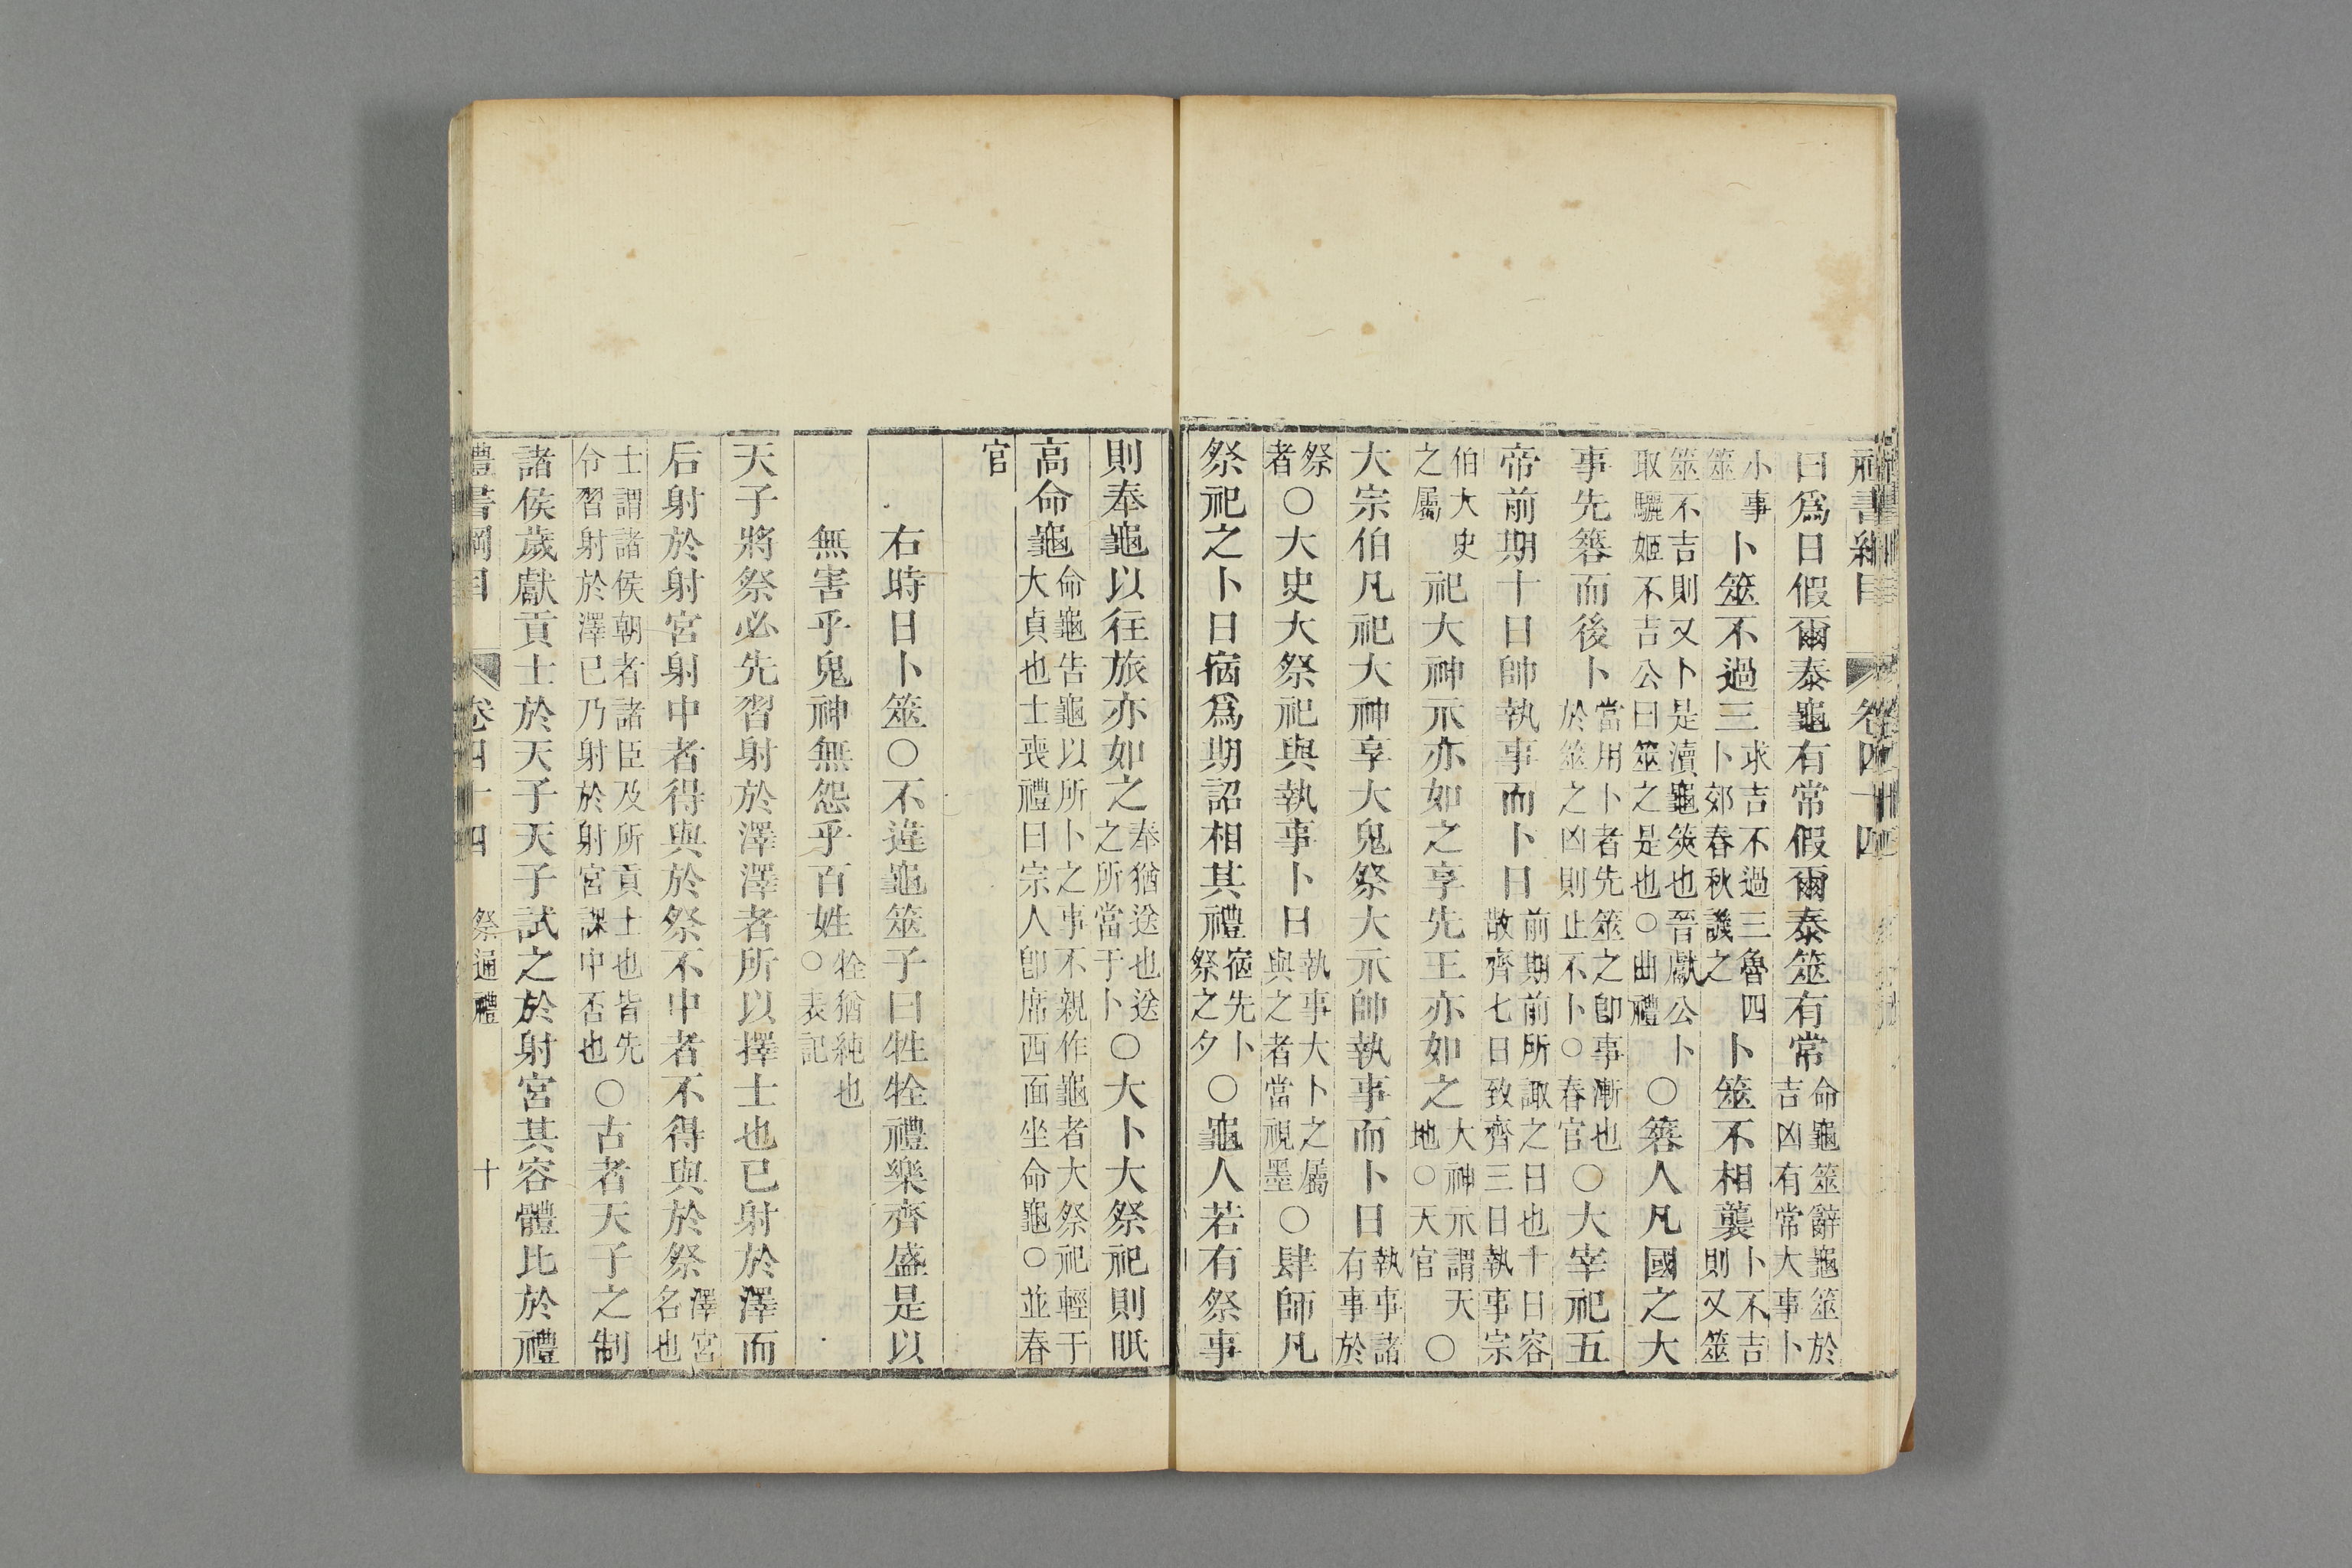 禮書綱目 卷四十四
曰爲日假爾泰龜有常假爾泰筮有常命龜筮辭龜筮於吉凶有常大事卜
小事筮卜筮不過三求吉不過三魯四卜郊春秋譏之卜筮不相襲卜不吉則又筮
筮不吉則又卜是瀆龜筴也晉獻公卜取驪姬不吉公曰筮之是也○曲禮○簭人凡國之大
事先簭而後卜當用卜者先筮之卽事漸也於筮之凶則止不卜○春官○大宰祀五
帝前期十日帥執事而卜日前期前所諏之日也十日容散齊七日致齊三日執事宗
伯大史之屬祀大神示亦如之享先王亦如之大神示謂天地○天官○
大宗伯凡祀大神享大鬼祭大示帥執事而卜日執事諸有事於
祭者○大史大祭祀與執事卜日執事大卜之屬與之者當視墨○肆師凡
祭祀之卜日宿爲期詔相其禮宿先卜祭之夕○龜人若有祭事
則奉龜以往旅亦如之奉猶送也送之所當于卜○大卜大祭祀則眡
高命龜命龜告龜以所卜之事不親作龜者大祭祀輕于大貞也士喪禮曰宗人卽席西面坐命龜○並春
官
右時日卜筮○不違龜筮子曰牲牷禮樂齊盛是以
無害乎鬼神無怨乎百姓牷猶純也○表記
天子將祭必先習射於澤澤者所以擇士也已射於澤而
后射於射宮射中者得與於祭不中者不得與於祭澤宮名也
士謂諸侯朝者諸臣及所貢士也皆先令習射於澤已乃射於射宮課中否也○古者天子之制
諸侯歲獻貢士於天子天子試之於射宮其容體比於禮
禮書綱目 卷四十四 祭通禮 十